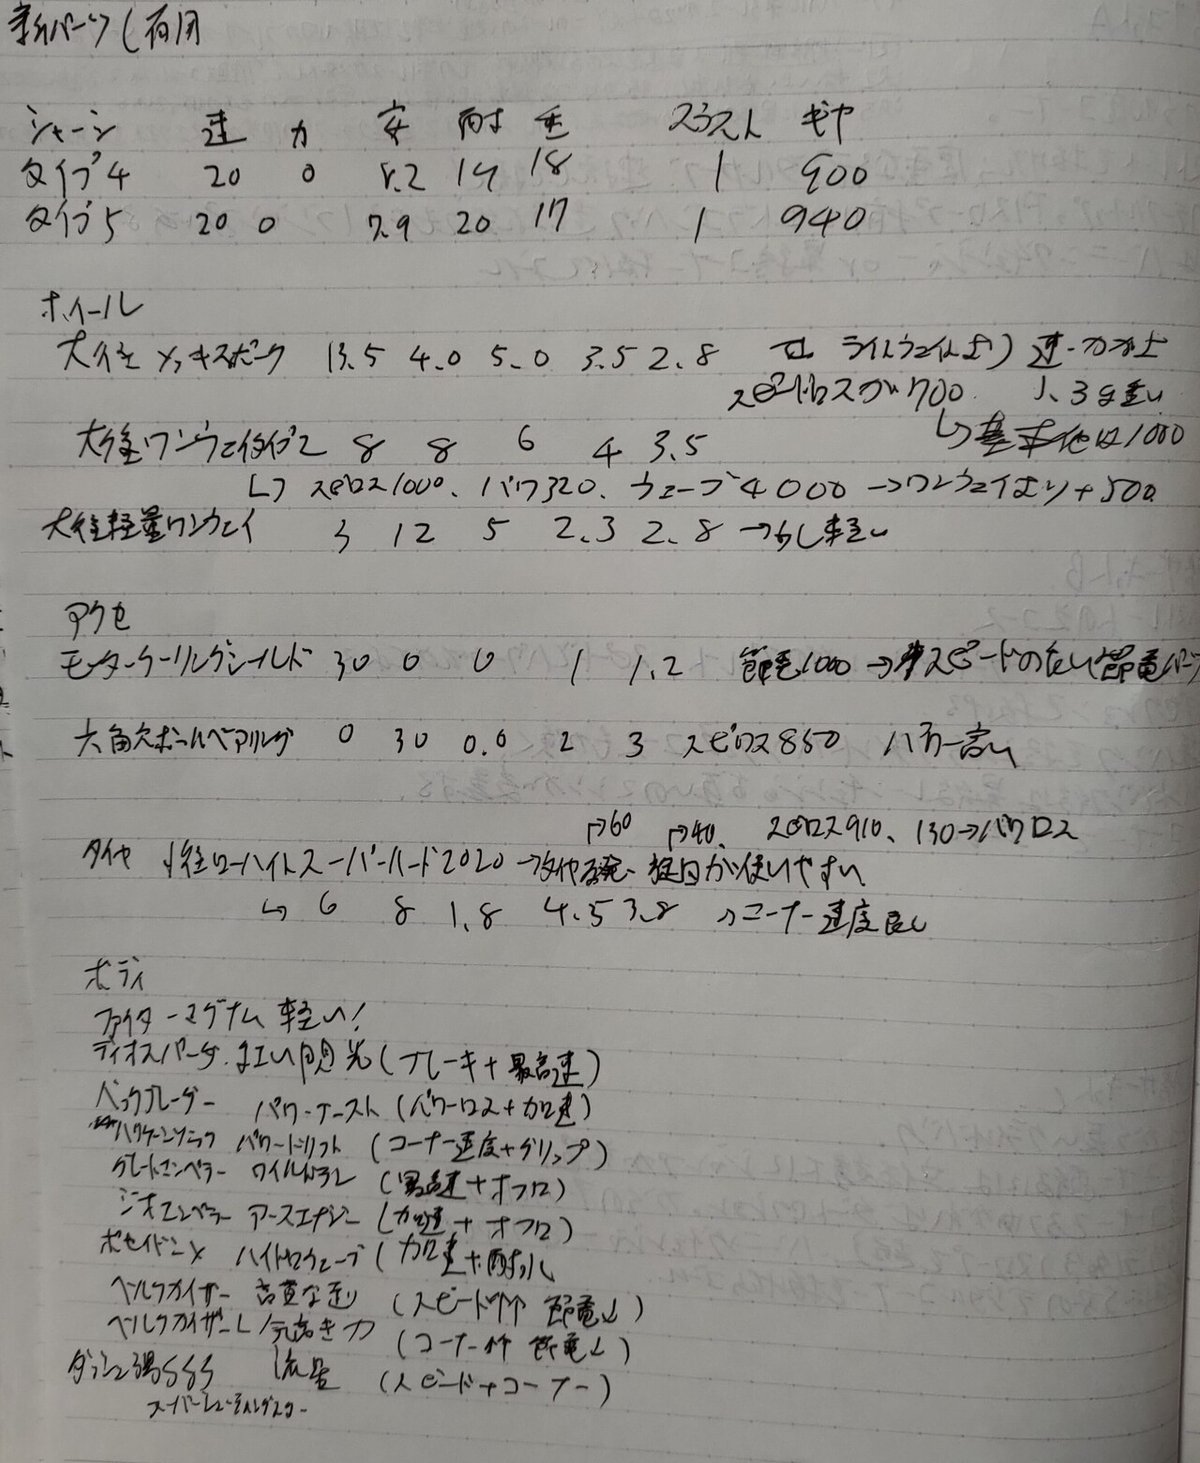 新パーツ(有用
シャーシ 速 力 安 耐 重 スラスト ギヤ
タイプ4 20 0 8.2 14 18 1 900
タイプ5 20 0 7.9 20 17 1 940
ホイール
大径メッキスポーク 13.5 4.0 5.0 3.5 2.8 ライトウェイトより 速・力が上
スピードロスが700 1.3g重い
大径ワンウェイタイプ2 8 8 6 4 3.5 基本他は1000
スピロス1000、パワ320、ウェーブ4000→ワンウェイより+500
大径軽量ワンウェイ 3 12 5 2.3 2.8 →少し軽い
アクセ
モータークーリングシールド 30 0 0 1 1.2 節電1000→スピードのない節電パーツ
六角穴ボールベアリング 0 30 0.0 2 3 スピロス850 パワー高い
→60 →40、スピロス910、130→パワロス
タイヤ 小径ローハイトスーパーハード2020→ が使いやすい
↳ 6 8 1.8 4.5 3.8 →コーナー速度良し
ボディ
ファイターマグナム 軽い!
ディオスパーダ 閃光(ブレーキ+最高速)
ベックブレーダー パワーブースト(パワーロス+加速)
ハリケーンソニック パワードリフト (コーナー速度+グリップ)
グレートエンペラー ワイルドラン (最高速+オフロ)
ジオエンペラー アースエナジー (加速+オフロ)
ポセイドンX ハイドロウェーブ (加速+耐水
ベルクカイザー 高貴な走り (スピード↑↑ 節電↓)
ベルクカイザーL 気高き力 (コーナー↑↑ 節電↓)
ダッシュ3号SSS 流星 (スピード+コーナー)
スーパーシューティングスター